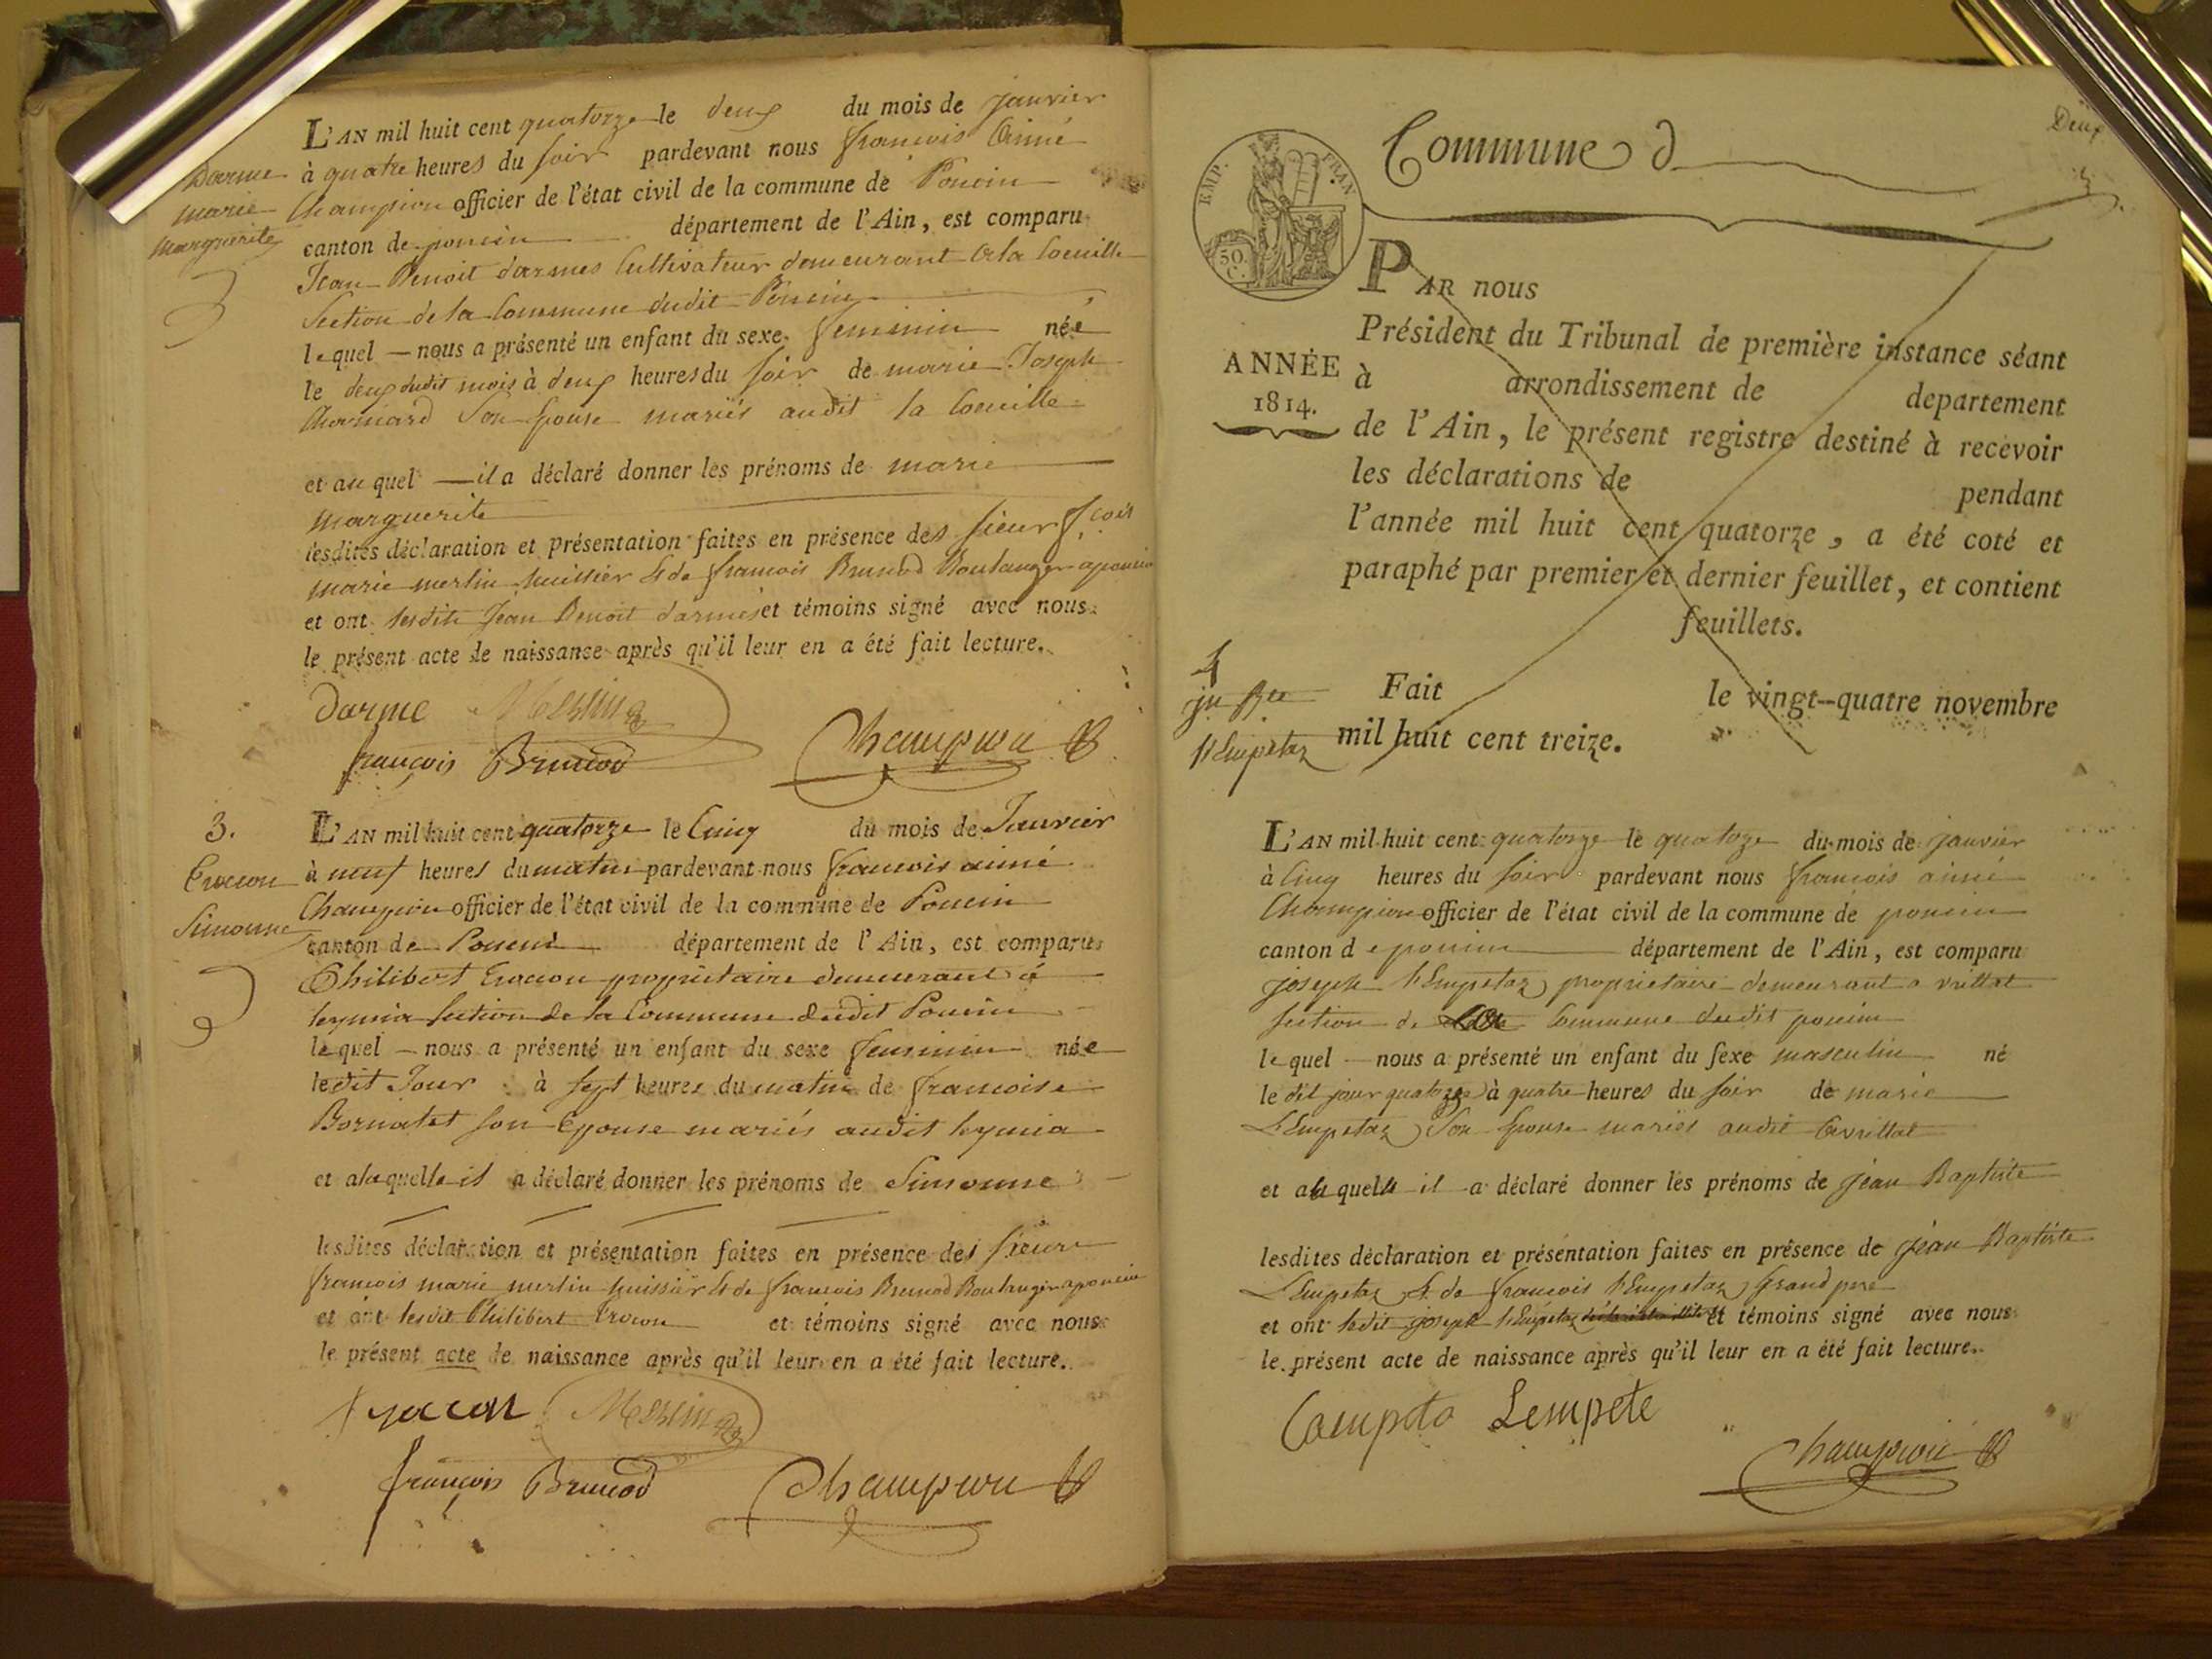 L'AN mil huit cent quatorze le deux du mois de janvier
à quatre heures du soir pardevant nous francois Aimé
Champion officier de l'état civil de la commune de Poncin
canton de poncin département de l'Ain, est comparu
Jean Benoit darmes Cultivateur demeurant a la
Section de la Commune dudit Poncin
lequel nous a présenté un enfant du sexe feminin née
le deux dudit mois à deux heures du soir de marie Joseph
Charnard Son Epouse mariés audit la
et au quel il a déclaré donner les prénoms de marie
marguerite
lesdites déclaration et présentation faites en présence des sieur fçois
marie merlin huissier & de francois Brunod Boulanger a poncin
et ont lesdits Jean Benoit darmes et témoins signé avec nous
le présent acte de naissance après qu'il leur en a été fait lecture.
Darme
marie
marguerite
Darme Merlin
françois Brunod Champion
3.
Simonne
L'AN mil huit cent quatorze le Cinq du mois de Janvier
à neuf heures du matin pardevant nous francois aimé
Champion officier de l'état civil de la commune de Poncin
canton de Poncin département de l'Ain, est comparu
Philibert proprietaire demeurant à
leymia Section de la Commune dudit Poncin
lequel nous a présenté un enfant du sexe feminin née
ledit Jour à sept heures du matin de francoise
Bornatet son Epouse mariés audit leymia
et a laquelle il a déclaré donner les prénoms de Simonne
lesdites déclaration et présentation faites en présence des sieurs
francois marie merlin huissier & de francois Brunod Boulanger a poncin
et ont lesdit Philibert et témoins signé avec nous
le présent acte de naissance après qu'il leur en a été fait lecture.
Merlin
françois Brunod Champion
Deux
Commune d
EMP. FRAN
50. C.
PAR nous
Président du Tribunal de première instance séant
ANNÉE
1814.
à arrondissement de departement
de l'Ain, le présent registre destiné à recevoir
les déclarations de pendant
l'année mil huit cent quatorze, a été coté et
paraphé par premier et dernier feuillet, et contient
feuillets.
Fait le vingt-quatre novembre
mil huit cent treize.
4
jn Bte
l'Empetaz
L'AN mil huit cent quatorze le quatoze du mois de janvier
à Cinq heures du soir pardevant nous francois aimé
Champion officier de l'état civil de la commune de poncin
canton de poncin département de l'Ain, est comparu
joseph l'Empetaz proprietaire demeurant a
section de Commune dudit poncin
lequel nous a présenté un enfant du sexe masculin né
le dit jour quatoze à quatre heures du soir de marie
L'Empetaz Son Epouse mariés audit
et a la quelle il a déclaré donner les prénoms de jean Baptiste
lesdites déclaration et présentation faites en présence de jean Baptiste
L'Empetaz & de francois l'Empetaz Grand pere
et ont ledit joseph l'Empetaz et témoins signé avec nous
le présent acte de naissance après qu'il leur en a été fait lecture.
Lempete
Champion